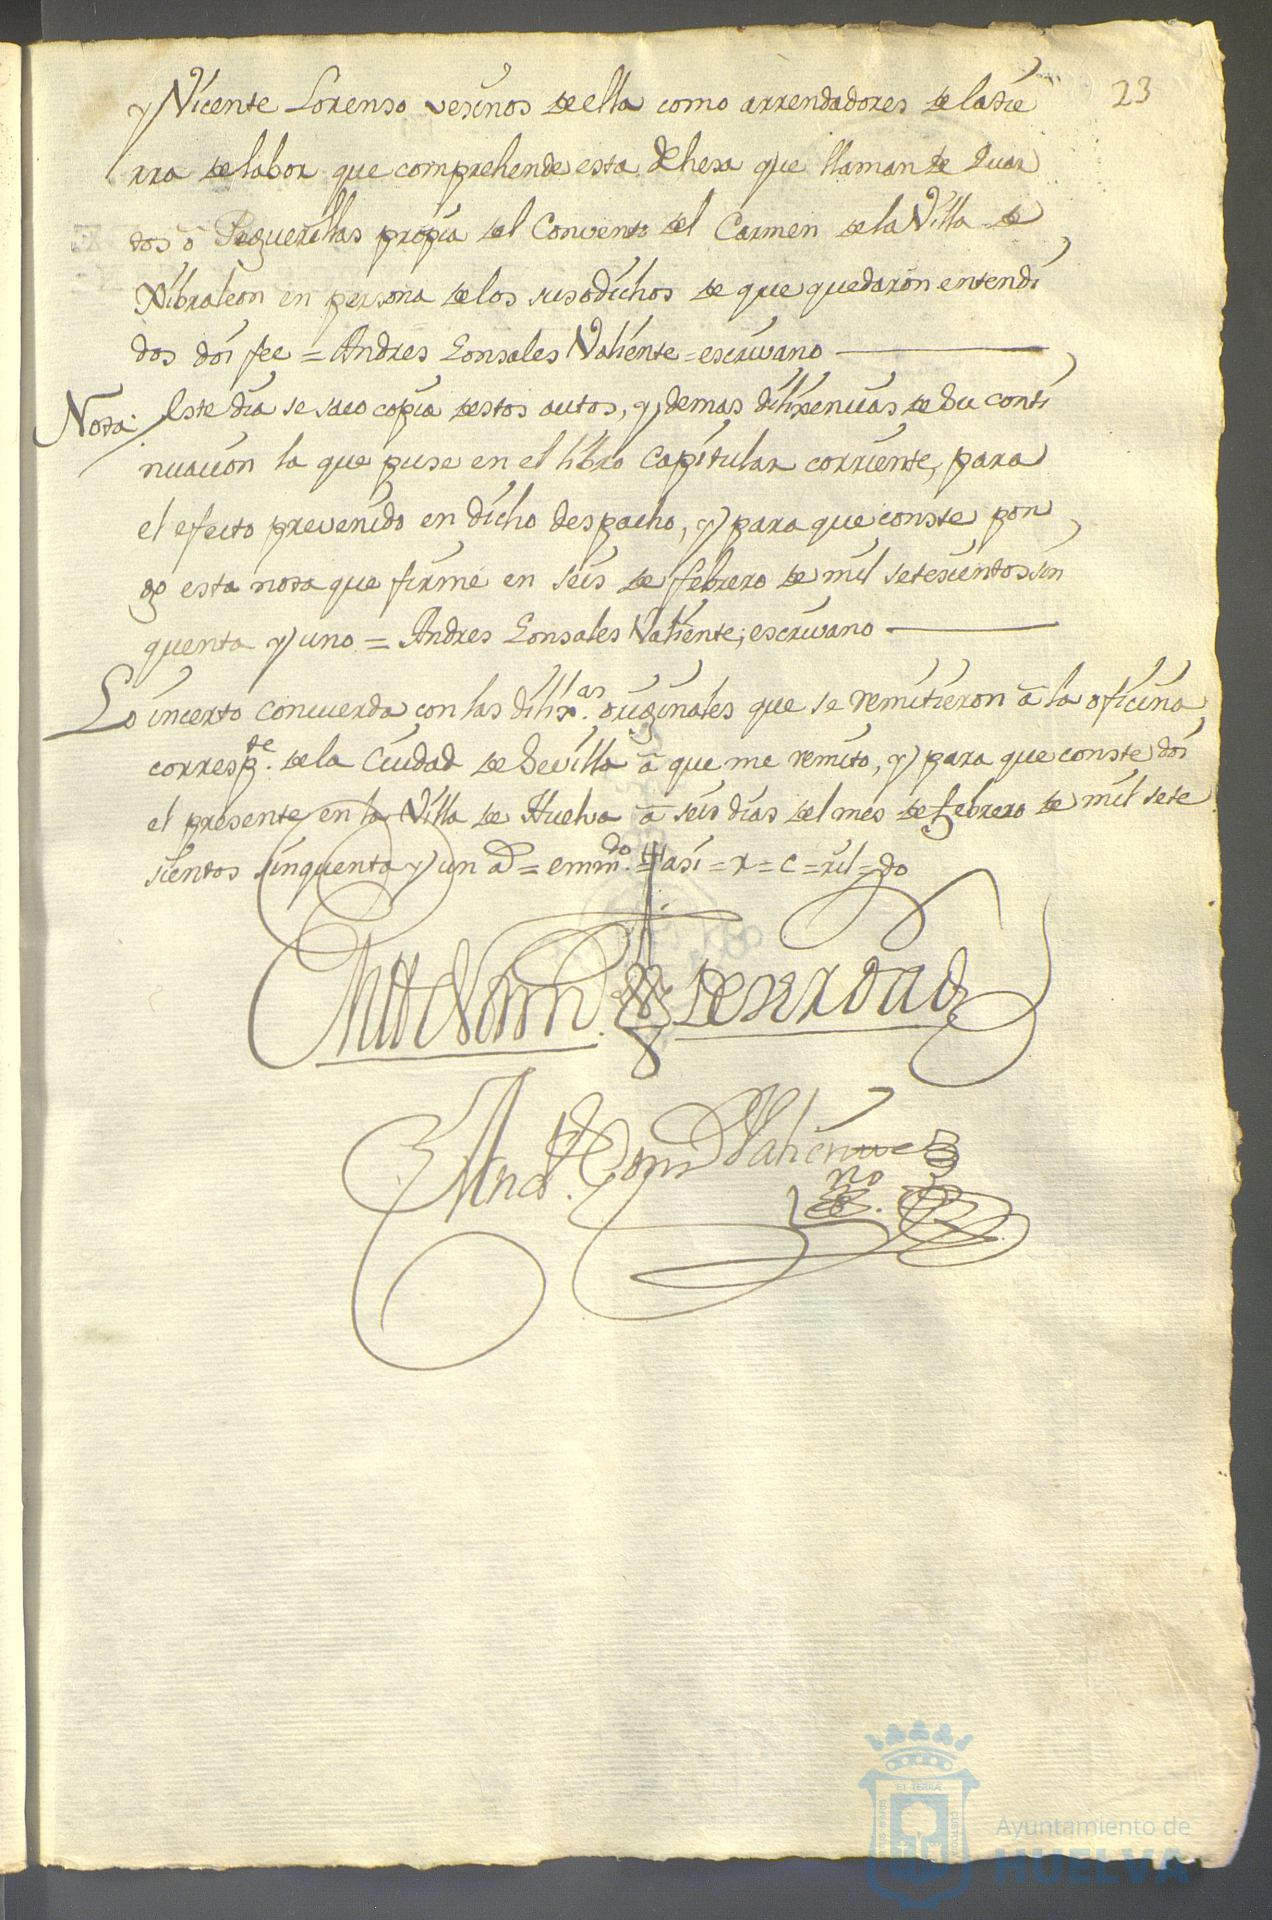 23
y Vicente Lorenso vesinos de ella como arrendadores de la tie
rra de labor que comprehende esta dehesa que llaman de Duar
dos ô Peguerillas propia del Convento del Carmen de la Villa de
Xibraleon en persona de los susodichos de que quedaron entendi
dos doi fee = Andres Gonsales Valiente = escrivano
Nota: Este dia se saco copia destos autos, y demas dilixencias de Su conti
nuacion la que puse en el libro Capitular corriente, para
el efecto prevenido en dicho despacho, y para que conste pon
go esta nota que firme en seis de febrero de mil setesientos sin
quenta y uno = Andres Gonsales Valiente, escrivano
Lo incerto concuerda con las dilix.as originales que se remitieron â la oficina
corresp.te de la Ciudad de Sevilla â que me remito, y para que conste doi
el presente en la Villa de Huelva â seis dias del mes de febrero de mil sete
sientos sinquenta y un a.s = emm.do = asi = x = c = xil = do
En testimonio de verdad
And.s Gonz Valiente
es.no
ET TERRÆ
CUSTODIA
PORTUS MARIS
Ayuntamiento de
HUELVA